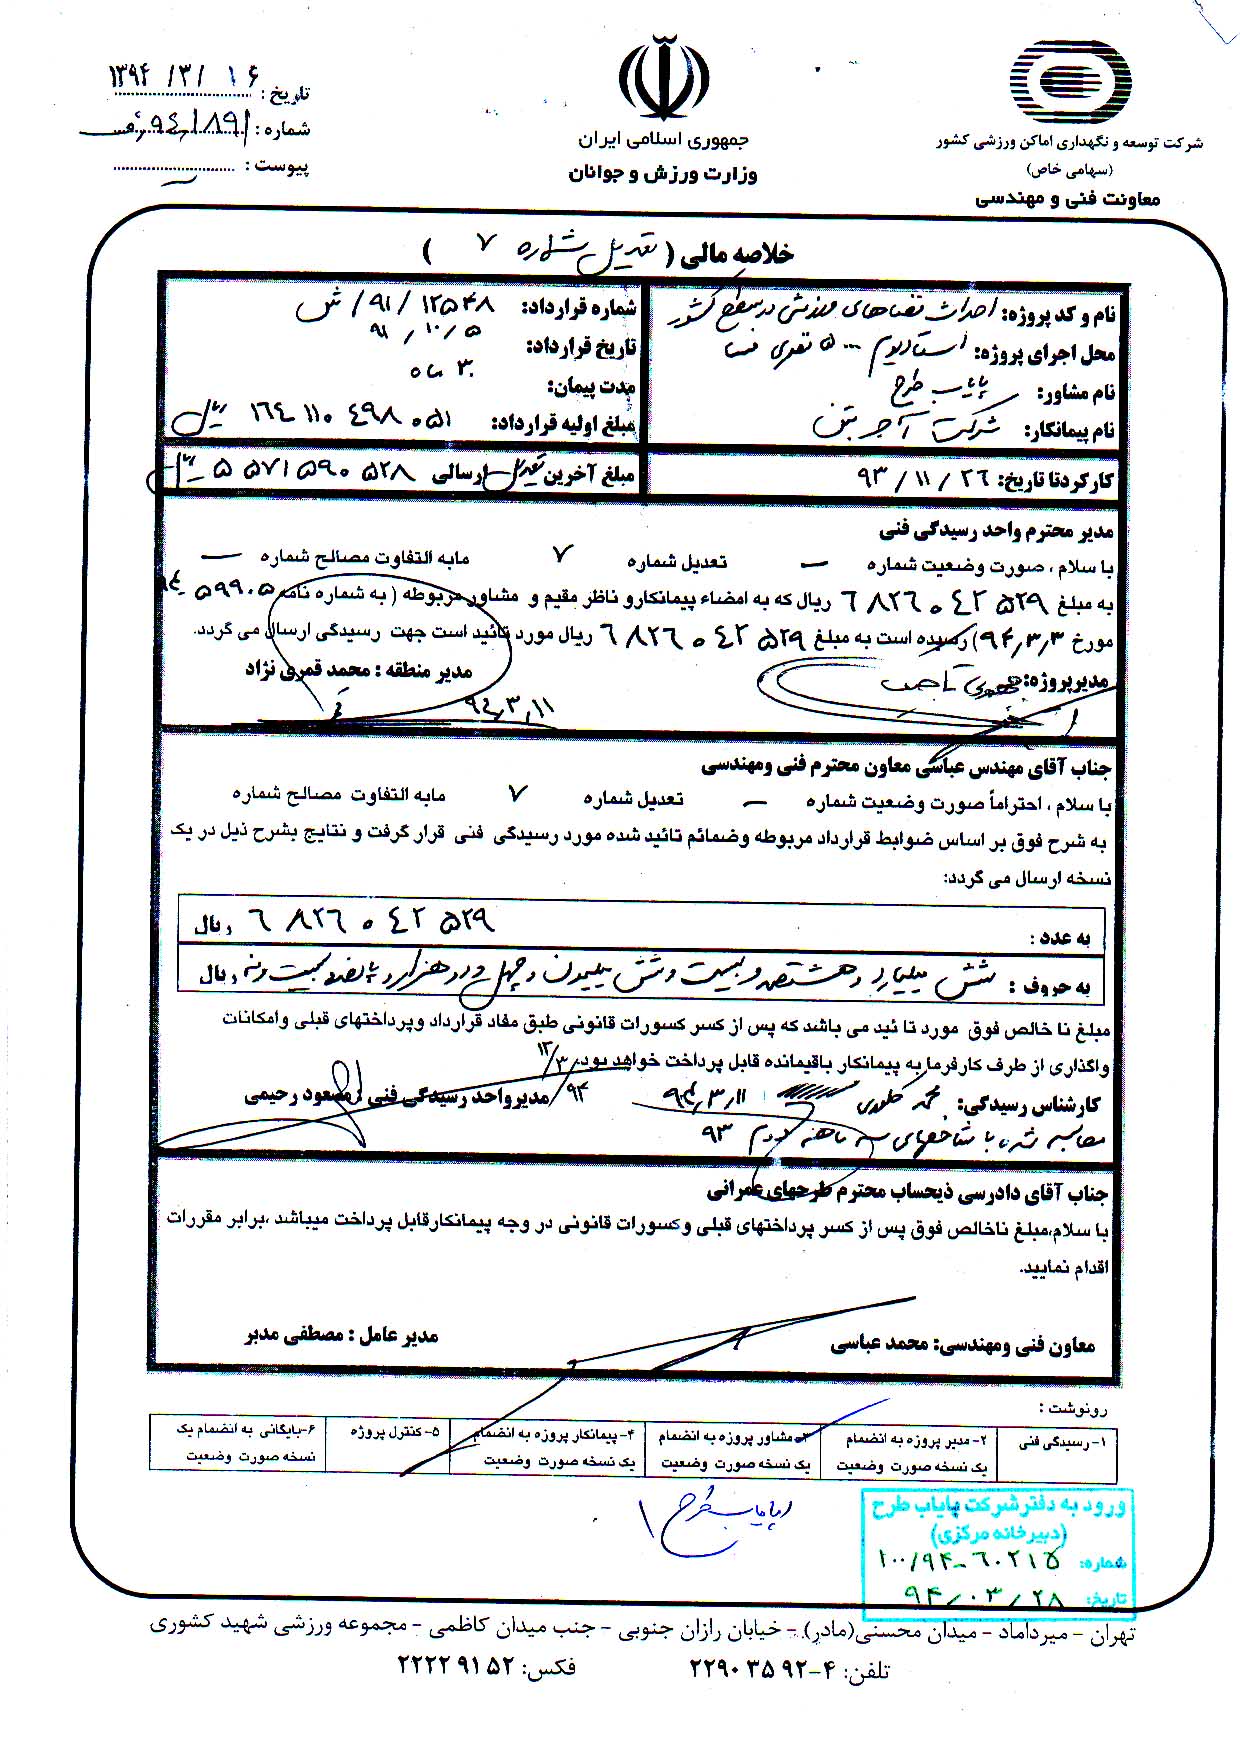 شرکت توسعه و نگهداری اماکن ورزشی کشور
(سهامی خاص)
معاونت فنی و مهندسی
جمهوری اسلامی ایران
وزارت ورزش و جوانان
تاریخ: ۱۳۹۴/۳/۱۶
شماره:
پیوست:
خلاصه مالی ( تعدیل شماره ۷ )
نام و کد پروژه: احداث فضاهای ورزشی در سطح کشور
محل اجرای پروژه: استادیوم ۵۰۰۰ نفری فسا
نام مشاور: پایاب طرح
نام پیمانکار: شرکت آجر بتن
شماره قرارداد: ۹۱/۱۲۵۴۸/ش
تاریخ قرارداد: ۹۱/۱۰/۵
مدت پیمان: ۳۰ ماه
مبلغ اولیه قرارداد: ۱۶۴ ۱۱۰ ۴۹۸ ۰۵۱ ریال
کارکرد تا تاریخ: ۹۳/۱۱/۲۶
مبلغ آخرین تعدیل ارسالی ۵ ۵۷۱ ۵۹۰ ۵۲۸ ریال
مدیر محترم واحد رسیدگی فنی
با سلام ، صورت وضعیت شماره — تعدیل شماره ۷ مابه التفاوت مصالح شماره —
به مبلغ ۶ ۸۲۶ ۰۴۲ ۵۲۹ ریال که به امضاء پیمانکارو ناظر مقیم و مشاور مربوطه ( به شماره نامه
مورخ ۹۴,۳,۳) رسیده است به مبلغ ۶ ۸۲۶ ۰۴۲ ۵۲۹ ریال مورد تائید است جهت رسیدگی ارسال می گردد.
مدیرپروژه:
مدیر منطقه : محمد قمری نژاد
۹۴,۳,۱۱
جناب آقای مهندس عباسی معاون محترم فنی ومهندسی
با سلام ، احتراماً صورت وضعیت شماره — تعدیل شماره ۷ مابه التفاوت مصالح شماره
به شرح فوق بر اساس ضوابط قرارداد مربوطه وضمائم تائید شده مورد رسیدگی فنی قرار گرفت و نتایج بشرح ذیل در یک
نسخه ارسال می گردد:
به عدد : ۶ ۸۲۶ ۰۴۲ ۵۲۹ ریال
به حروف : شش میلیارد و هشتصد و بیست و شش میلیون و چهل و دو هزار و پانصد و بیست و نه ریال
مبلغ نا خالص فوق مورد تا ئید می باشد که پس از کسر کسورات قانونی طبق مفاد قرارداد وپرداختهای قبلی وامکانات
واگذاری از طرف کارفرما به پیمانکار باقیمانده قابل پرداخت خواهد بود.
کارشناس رسیدگی: محمد ۹۴,۳,۱۱
مدیرواحد رسیدگی فنی : مسعود رحیمی
۹۴/۳/۱۲
محاسبه شده با شاخصهای سه ماهه دوم ۹۳
جناب آقای دادرسی ذیحساب محترم طرحهای عمرانی
با سلام،مبلغ ناخالص فوق پس از کسر پرداختهای قبلی وکسورات قانونی در وجه پیمانکارقابل پرداخت میباشد ،برابر مقررات
اقدام نمایید.
معاون فنی ومهندسی: محمد عباسی
مدیر عامل : مصطفی مدبر
رونوشت :
۱- رسیدگی فنی
۲- مدیر پروژه به انضمام یک نسخه صورت وضعیت
۳-مشاور پروژه به انضمام یک نسخه صورت وضعیت
۴- پیمانکار پروژه به انضمام یک نسخه صورت وضعیت
۵- کنترل پروژه
۶-بایگانی به انضمام یک نسخه صورت وضعیت
پایاب طرح
ورود به دفترشرکت پایاب طرح
(دبیرخانه مرکزی)
شماره: ۱۰۰/۹۴-۶۰۲۱۵
تاریخ: ۹۴/۰۳/۲۸
تهران – میرداماد – میدان محسنی(مادر) – خیابان رازان جنوبی – جنب میدان کاظمی – مجموعه ورزشی شهید کشوری
تلفن: ۴-۲۲۹۰۳۵۹۲ فکس: ۲۲۲۲۹۱۵۲